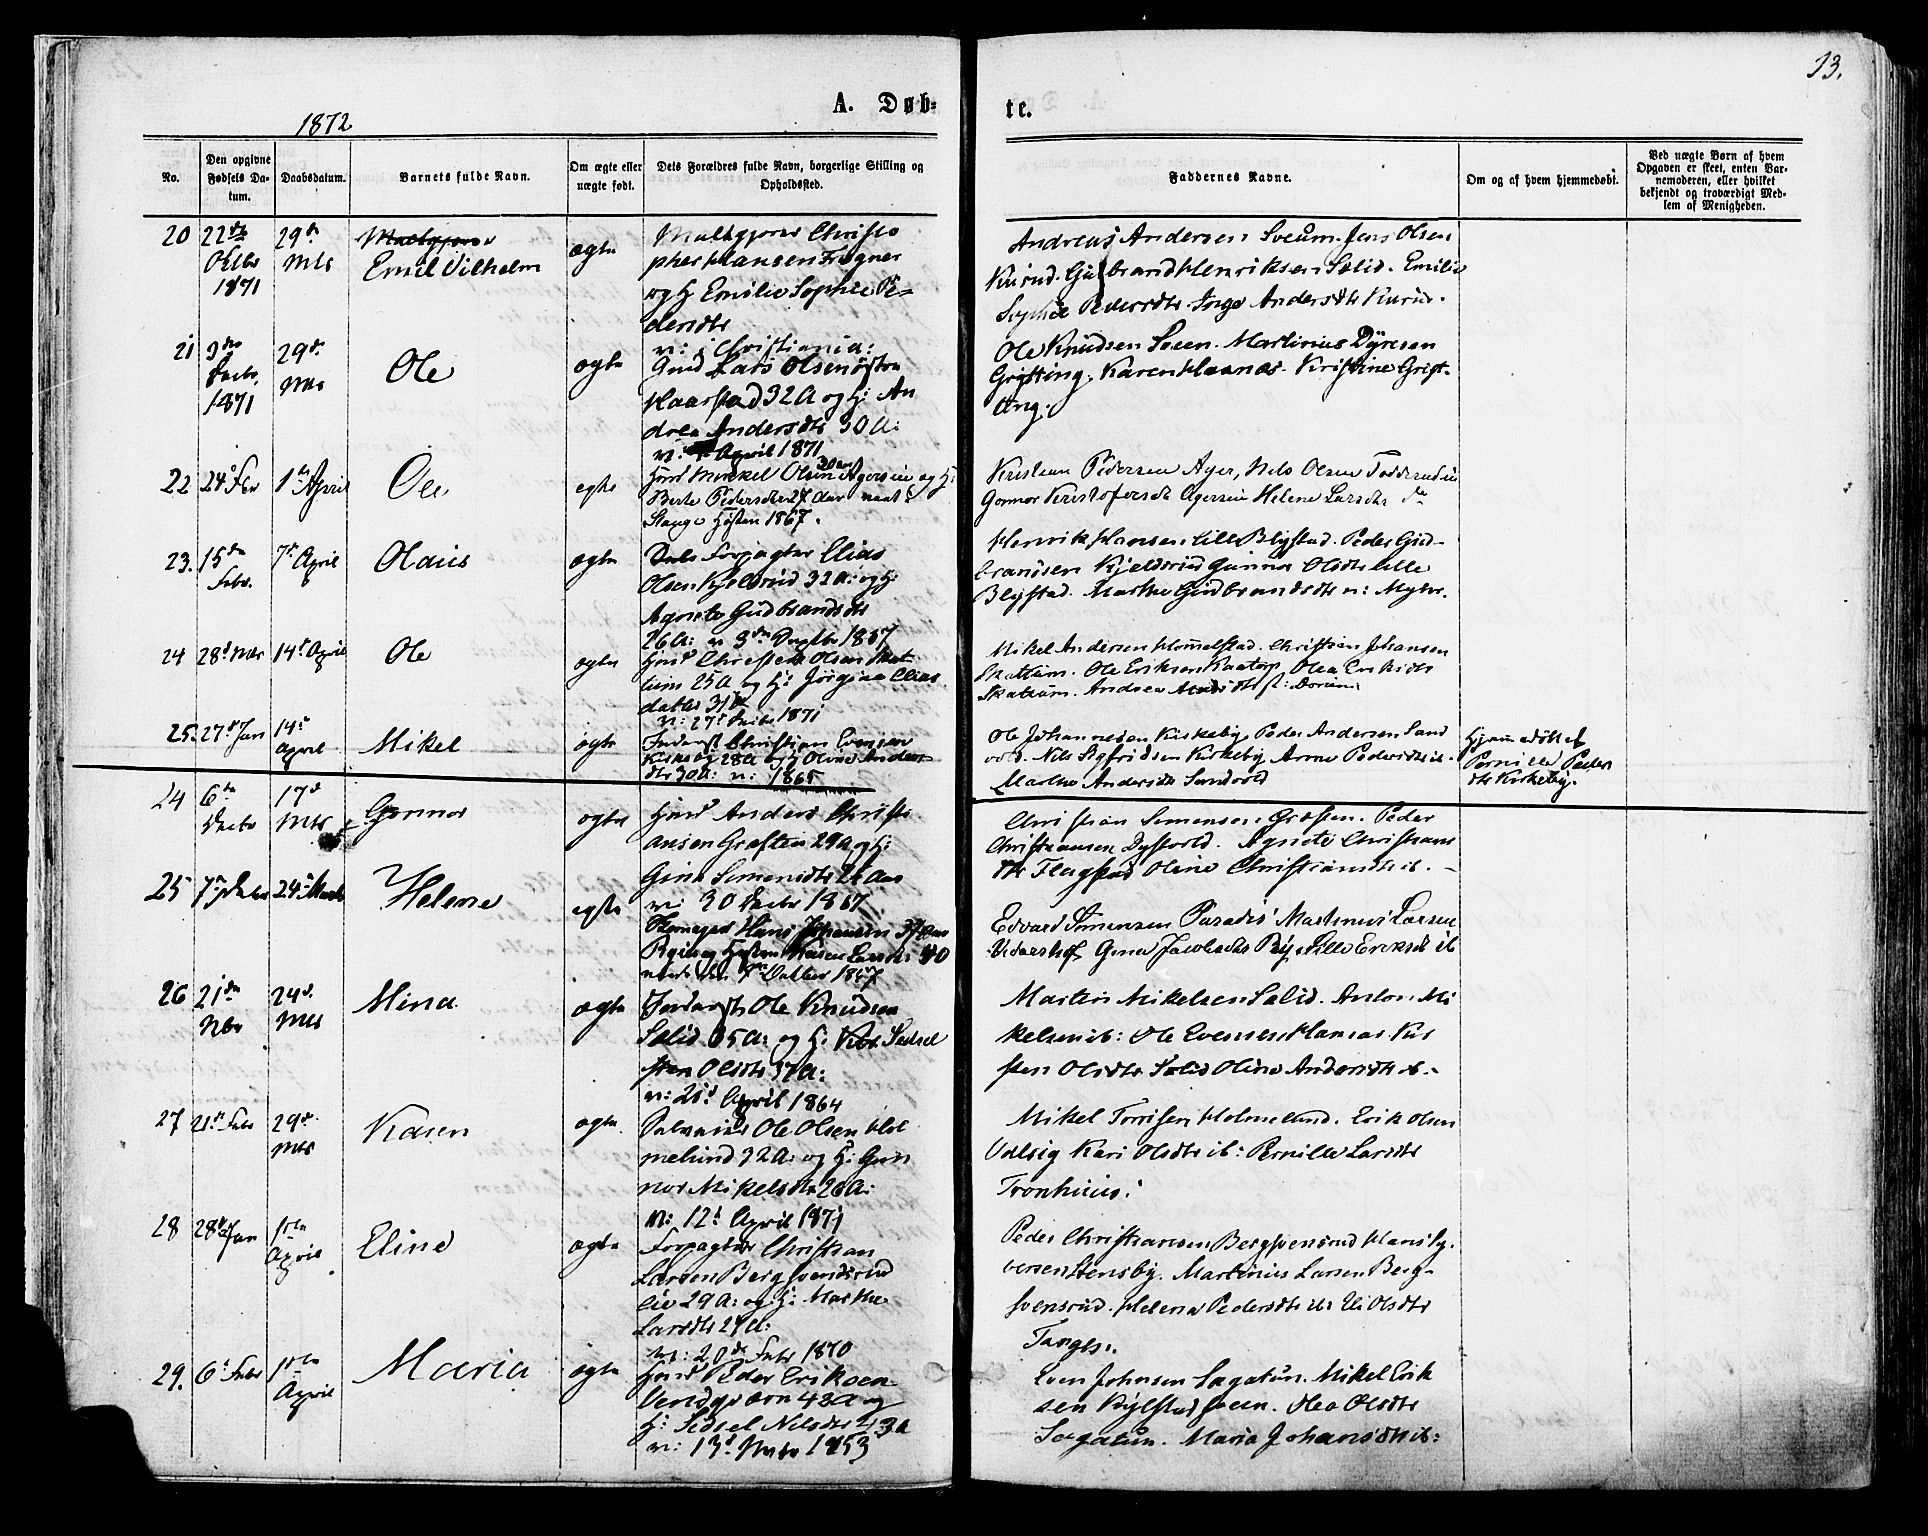 13.
A. Døb-
te.
1872
No.
Den opgivne Fødsels Da-tum.
Daabsdatum.
Barnets fulde Navn.
Om ægte eller uægte født.
Dets Forældres fulde Navn, borgerlige Stilling og Opholdssted.
Faddernes Navne.
Om og af hvem hjemmedøbt.
Ved uægte Børn af hvem Opgaven er skeet, enten Bar-nemoderen, eller hvilket bekjendt og troværdigt Med-lem af Menigheden.
20
22de
Oktbr
1871
29d
Mts
Emil Vilhelm
ægte
Maltgjører Christo
pher Hansen Frogner
og H. Emilie Sophie Pe-
dersdtr
v: i Christiania:
Andreas Andersen Sveum. Jens Olsen
Kurud. Gulbrand Henriksen Sælid. Emilie
Sophie Pedersdtr. Inge Andersdtr Kurud.
21
3die
Decbr.
1871
29d.
Mts
Ole
ægte
Gmd Lars Olsen Østre
Haarstad 32 A og H: An
drea Andersdtr 30 A:
v: April 1871
Ole Knudsen Sveen. Martinius Dyresen
Grytting. Karen Haanæs. Kristine Gryt-
ting.
22
24 Feb
1ste April
Ole
egte
Husm Mikkel Olsen Agersvee og H:
Berte Pedersdtr 27 Aar viet i
Stange Høsten 1867.
Kristian Pedersen Ager, Nils Olsen
Gonnor Kristofersdt Agersvee Helene Larsdtr do
23.
15de
Febr.
7de April
Olaus
ægte
Forpagter Elias
Olsen Kjeldsrud 32 A: og H:
Agnete Gudbrandsdtr
26 A: v 3die 1867
Henrik Hansen Lille Blystad. Peder Gud-
brandsen Kjeldsrud Gunnor Olsdtr Lille
Blystad. Marthe Gudbrandsdtr n: Myhr.
24
28d Mar
14d April
Ole
ægte
Husmd Christen Olsen Skat
tum 25 A og H: Jørgine Elias
datter 31 A
v: 27d Decbr 1871
Mikel Andersen Hommelstad. Christian Johansen
Skattum. Ole Eriksen Kaatorp, Olea Eriksdtr
Skattum. Andrea
25.
27d Jan
14d
April
Mikel
ægte
Inderst Christian Evensen
Kirkeby 28 A og H Oline Anders
dtr 30 A: v: 1865
Ole Johannesen Kirkeby Peder Andersen Sand
vold. Nils Sigfridsen Kirkeby Anne Pedersdtr ib.
Marthe Andersdtr Sandvold
Hjemmedøbt af
Pernille Peders
dtr Kirkeby.
24
6te
Decbr
17d
Mts
Gonnor
ægte
Husmd Anders Christi
ansen Græften 29 A og H:
Gina Simensdtr 26 Aar
v: 30 Decbr 1867
Christian Simensen Græften. Peder
Christiansen Dystvold. Agnete Christians
dtr Flagstad Oline Christiansdtr ib.
25
7de
24de Marts
Helene
egte
Hans Johansen 37 Aar
Karen Larsdtr 40
1867
Edvard Simensen Paradis Martinus Larsen
Gina Jacobsdtr Bye Lille Eriksdt ib
26
21de
Nbr
24d.
Mts
Mina
ægte
Inderst Ole Knudsen
Sælid 35 A: og H: Sedsel
Olsdtr 37 A:
v: 21d April 1864
Martin Mikelsen Sælid. Anton Mi
kelsen ib: Ole Evensen Hamar. Kir
sten Olsdtr Sælid Oline Andersdtr ib.
27
21d Febr
29d.
Mts
Karen
ægte
Ole Olsen Hol
melund 32 A: og H: Gun
nor Mikelsdtr 26 A:
v: 12d April 1871
Mikel Torrisen Holmelund. Erik Olsen
Valsig Kari Olsdtr ib: Pernille Larsdtr
Tronhuus.
28
28d Jan
1ste
April
Eline
ægte
Forpagter Christian
Larsen Bergsvendsrud
eie 29 A: og H: Marthe
Larsdtr 24 A:
v: 20de Febr 1870
Peder Christiansen Bergsvensrud Hans Sy-
versen Stensby. Martinius Larsen Berg-
svensrud. Helene Pedersdtr ib: Eli Olsdtr
Tanges.
29.
6d Febr
1ste
April
Maria
ægte
Husmd Peder Eriksen
42 A og
H: Sedsel Nilsdtr 43 A
v: 13d 1853
Even Johnsen Sagatun. Mikel Erik
sen Kylstadsveen. Olea Olsdtr
Sagatun. Maria Johansdtr ib: